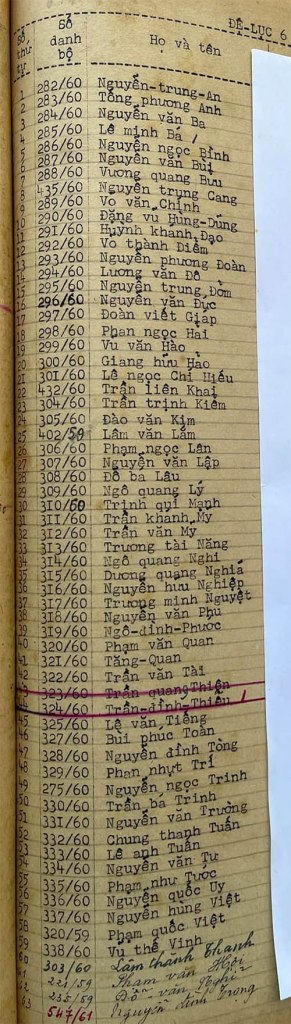 ĐỆ-LỤC 6
Số thứ tự Số danh bộ Họ và tên
1 282/60 Nguyễn-trung-An
2 283/60 Tống phương Anh
3 284/60 Nguyễn văn Ba
4 285/60 Lê minh Bá
5 286/60 Nguyễn ngọc Bình
6 287/60 Nguyễn văn Bùi
7 288/60 Vương quang Bưu
8 435/60 Nguyễn trung Cang
9 289/60 Vo văn Chính
10 290/60 Đặng vu Hùng-Dũng
11 291/60 Huỳnh khanh Đạo
12 292/60 Vo thành Điểm
13 293/60 Nguyễn phương Đoàn
14 294/60 Lương văn Đô
15 295/60 Nguyễn trung Đởm
16 296/60 Nguyễn văn Đức
17 297/60 Đoàn viết Giáp
18 298/60 Phan ngọc Hai
19 299/60 Vu văn Hào
20 300/60 Giang hữu Hạo
21 301/60 Lê ngọc Chi Hiếu
22 432/60 Trần liên Khai
23 304/60 Trần trịnh Kiêm
24 305/60 Đào văn Kim
25 402/59 Lâm văn Lắm
26 306/60 Phạm ngọc Lân
27 307/60 Nguyễn văn Lập
28 308/60 Đỗ ba Lâu
29 309/60 Ngô quang Lý
30 310/60 Trịnh qui Mạnh
31 311/60 Trần khanh My
32 312/60 Trần văn My
33 313/60 Trương tài Năng
34 314/60 Ngô quang Nghi
35 315/60 Dương quang Nghiã
36 316/60 Nguyễn hưu Nghiệp
37 317/60 Trương minh Nguyệt
38 318/60 Nguyễn văn Phu
39 319/60 Ngô-đình-Phước
40 320/60 Phạm văn Quan
41 321/60 Tăng-Quan
42 322/60 Trần văn Tài
43 323/60 Trần quang Thiện
44 324/60 Trần-đình-Thiều
45 325/60 Lê văn Tiếng
46 327/60 Bùi phuc Toàn
47 328/60 Nguyễn đình Tòng
48 329/60 Phan nhựt Trí
49 275/60 Nguyễn ngọc Trinh
50 330/60 Trần bá Trinh
51 331/60 Nguyễn văn Trường
52 332/60 Chung thanh Tuấn
53 333/60 Lê anh Tuấn
54 334/60 Nguyễn văn Tư
55 335/60 Phạm như Tước
56 336/60 Nguyễn quốc Uy
57 337/60 Nguyễn hùng Việt
58 320/59 Phạm quốc Việt
59 338/60 Vu thế Vinh
60 303/60 Lâm thanh Khanh
61 221/59 Phạm văn Hội
62 235/59 Đỗ văn Nghi
63 547/61 Nguyễn đình Trọng